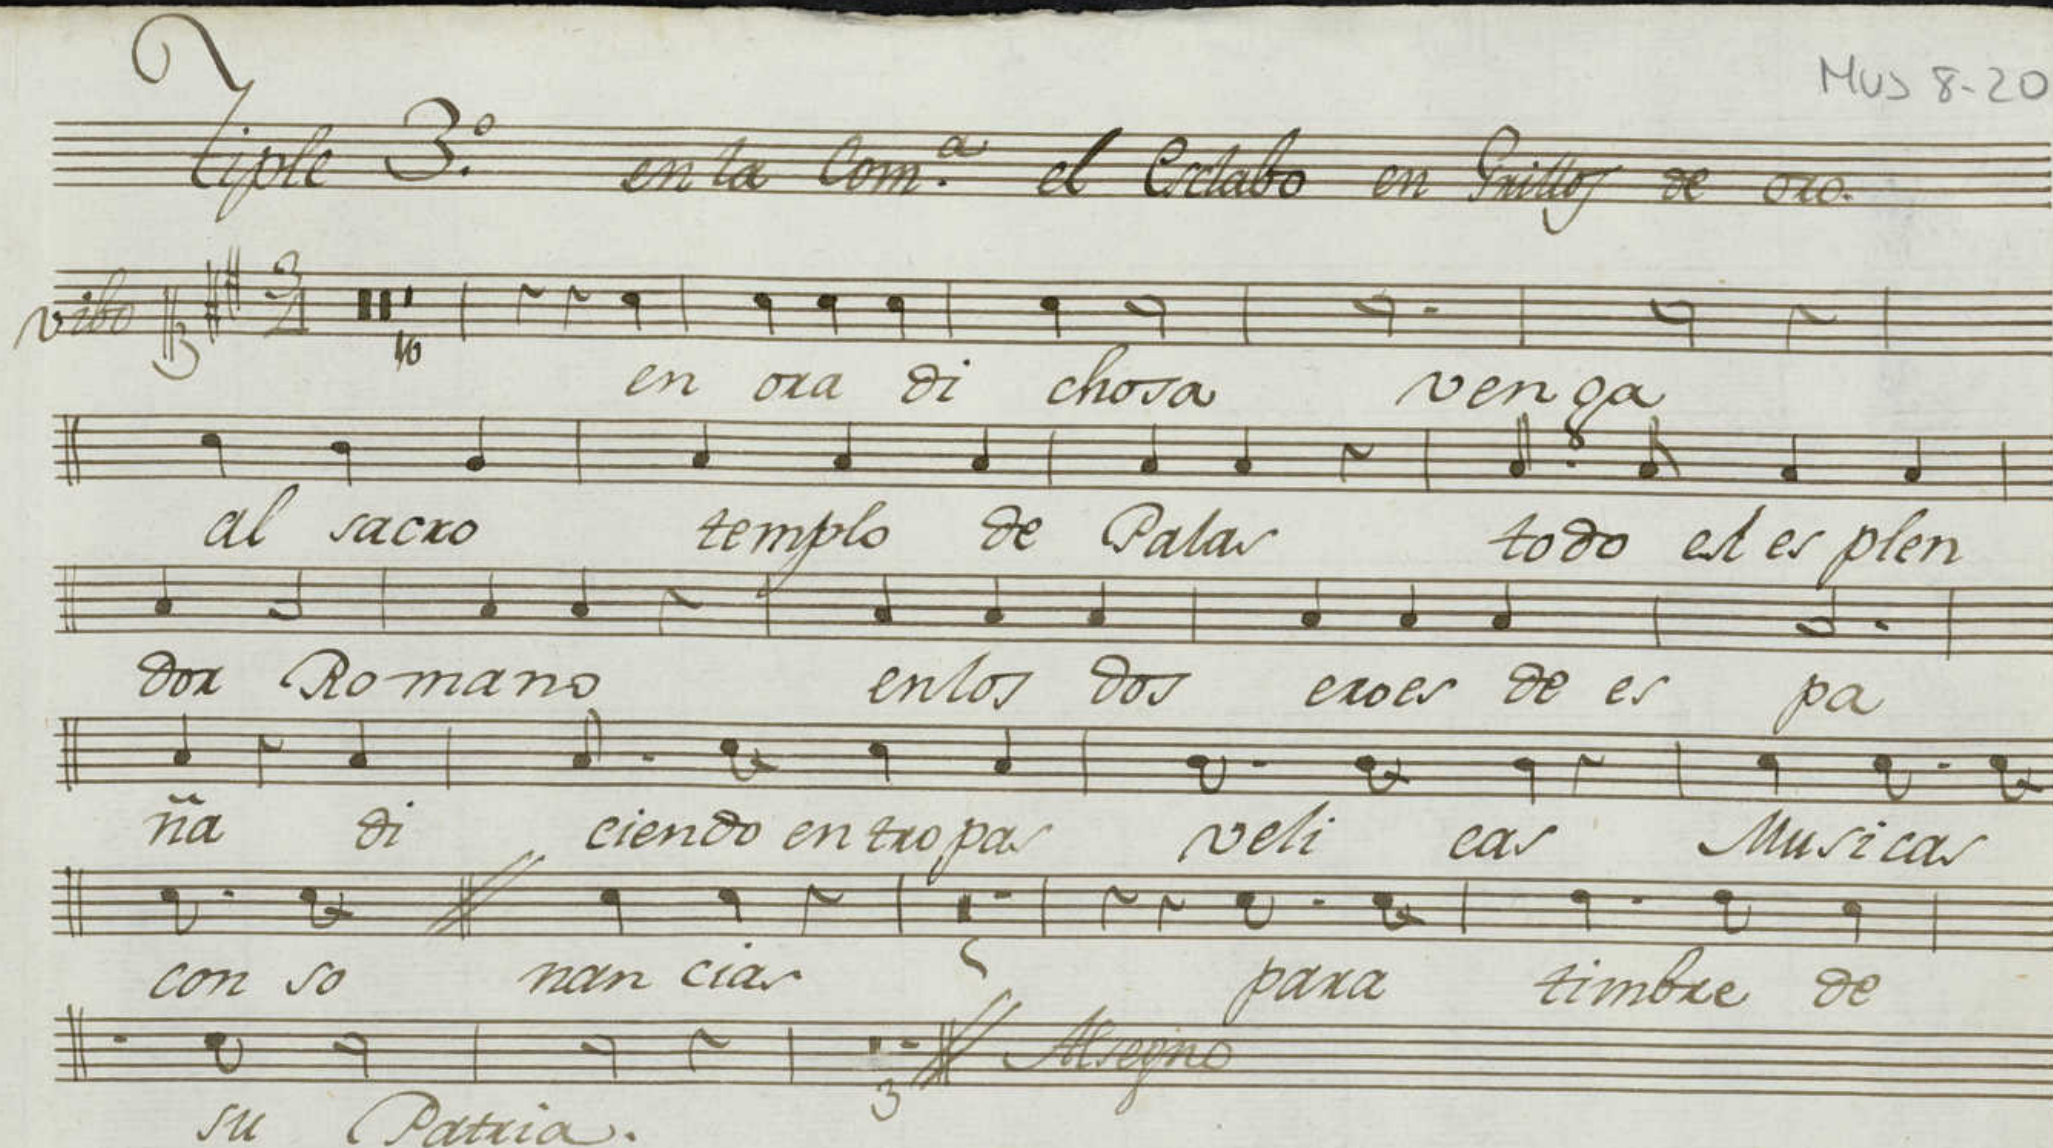 Mus 8-20
Tiple 3.º en la Com.ª el Esclabo en Grillos de oro.
vibo
3
10
en ora di chosa venga
al sacro templo de Palas todo el es plen
dor Romano en los dos eroes de es pa
ña di ciendo en tropas veli cas Musicas
con so nan cias para timbre de
3 Al segno
su Patria.